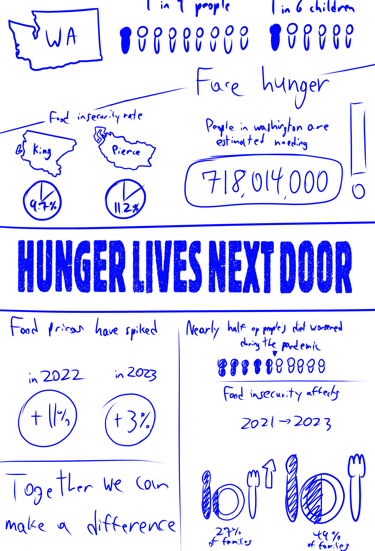 WA
1 in 9 people
1 in 6 children
Face hunger
Food insecurity rate
King
Pierce
9.7%
11.2%
People in washington are
estimated needing
718,014,000
!
HUNGER LIVES NEXT DOOR
Food prices have spiked
in 2022
in 2023
+11%
+3%
Together we can
make a difference
Nearly half of people's diet worsened
during the pandemic
Food insecurity affects
2021→2023
27%
of families
49%
of families